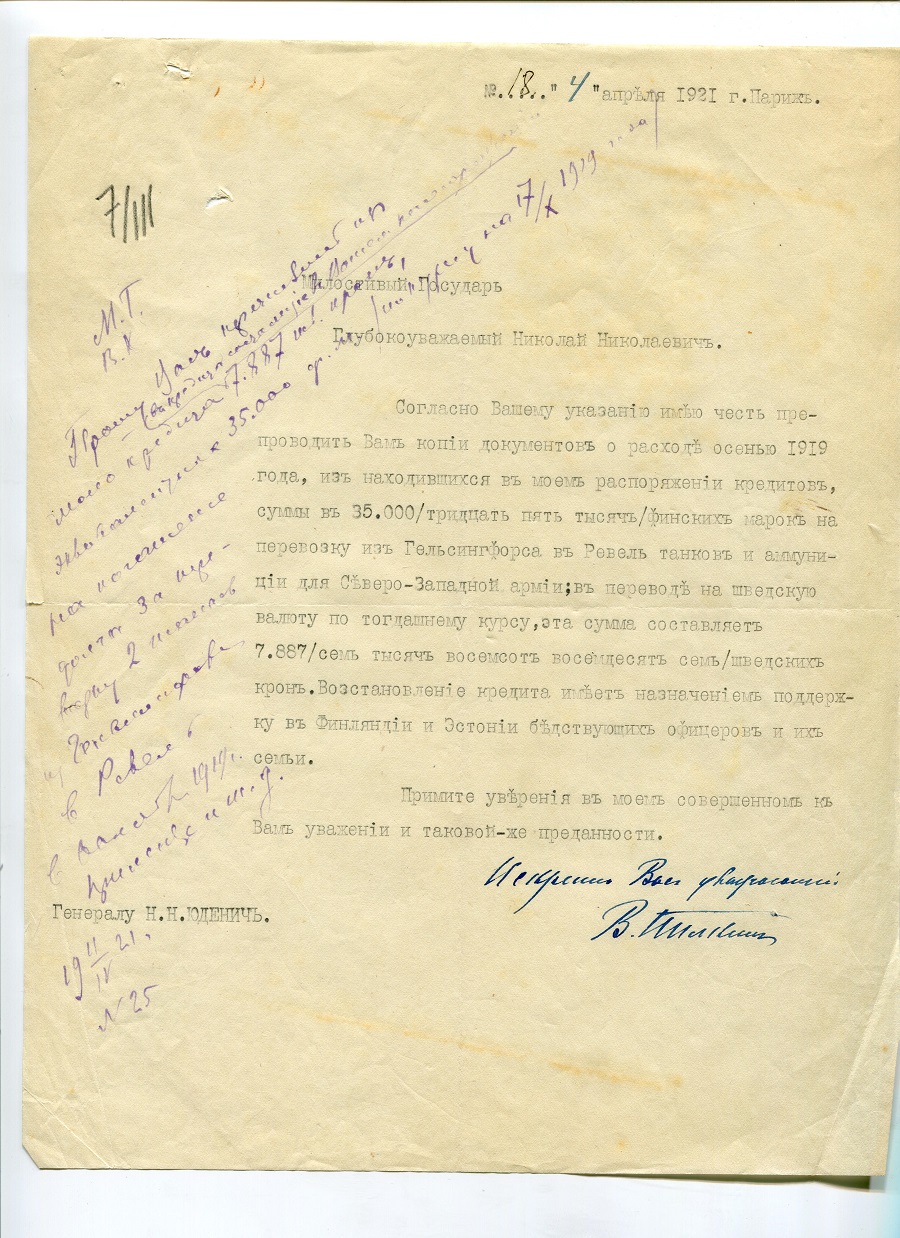 №.18."4"апрѣля 1921 г.Парижъ.
7/III
Милостивый Государь
Глубокоуважаемый Николай Николаевичъ.
Согласно Вашему указанію имѣю честь пре-
проводить Вамъ копіи документовъ о расходѣ осенью 1919
года, изъ находившихся въ моемъ распоряженіи кредитовъ,
суммы въ 35.000/тридцать пять тысячъ/финскихъ марокъ на
перевозку изъ Гельсингфорса въ Ревель танковъ и аммуни-
ціи для Сѣверо-Западной арміи;въ переводѣ на шведскую
валюту по тогдашнему курсу,эта сумма составляетъ
7.887/семь тысячъ восемсотъ восемдесятъ семь/шведскихъ
кронъ.Возстановленіе кредита имѣетъ назначеніемъ поддерж-
ку въ Финляндіи и Эстоніи бѣдствующихъ офицеровъ и ихъ
семьи.
Примите увѣренія въ моемъ совершенномъ къ
Вамъ уваженіи и таковой-же преданности.
Искренно Васъ уважающій
В.
Генералу Н.Н.ЮДЕНИЧЪ.
М.Г.
В.К.
Прошу Васъ
кредита 7.887 шв. кронъ,
35.000 ф. м. на 17/X 1919 года
на погашеніе
за пере-
возку 2 танковъ
изъ Гельсингфорса
въ Ревель
въ 1919 г.
и т. д.
19 11/IV 21.
N 25